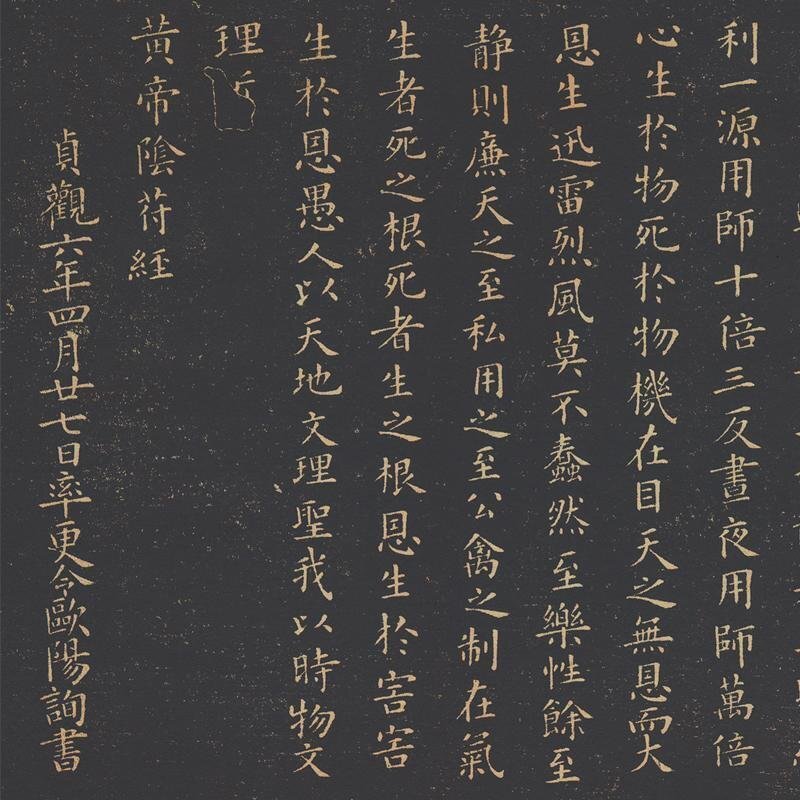 利一源用師十倍三反晝夜用師萬倍
心生於物死於物機在目天之無恩而大
恩生迅雷烈風莫不蠢然至樂性餘至
静則廉天之至私用之至公禽之制在氣
生者死之根死者生之根恩生於害害
生於恩愚人以天地文理聖我以時物文
理
黃帝陰苻經
貞觀六年四月廿七日率更令歐陽詢書